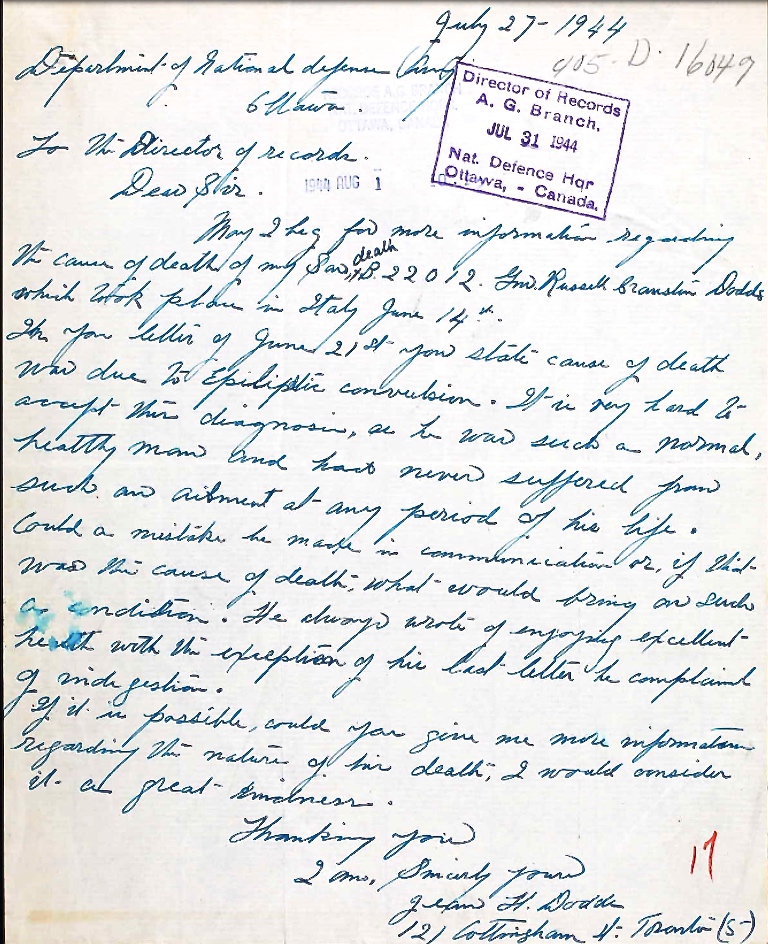 July 27 - 1944
405-D. 16049
Department of National defense Army
Ottawa
Director of Records
A. G. Branch.
JUL 31 1944
Nat. Defence Hqr
Ottawa, - Canada.
To the Director of records.
Dear Sir.
1944 AUG 1
May I beg for more information regarding
the cause of death of my Son, death
B. 22012. Gnr. Russell Cranstin Dodds
which took place in Italy June 14th.
In your letter of June 21st you state cause of death
was due to Epileptic convulsion. It is very hard to
accept this diagnosis, as he was such a normal,
healthy man and had never suffered from
such an ailment at any period of his life.
Could a mistake be made in communication or, if that
was the cause of death, what would bring on such
a condition. He always wrote of enjoying excellent
health with the exception of his last letter he complained
of indigestion.
If it is possible, could you give me more information
regarding the nature of his death, I would consider
it a great kindness.
Thanking you
I am, Sincerly yours
Jean H. Dodds
121 Cottingham St. Toronto (5)
17